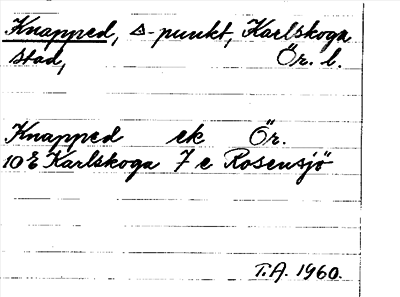 Knapped, Δ-punkt, Karlskoga
stad, Ör. l.
Knapped ek Ör.
10 E Karlskoga 7 e Rosensjö
T.A. 1960.